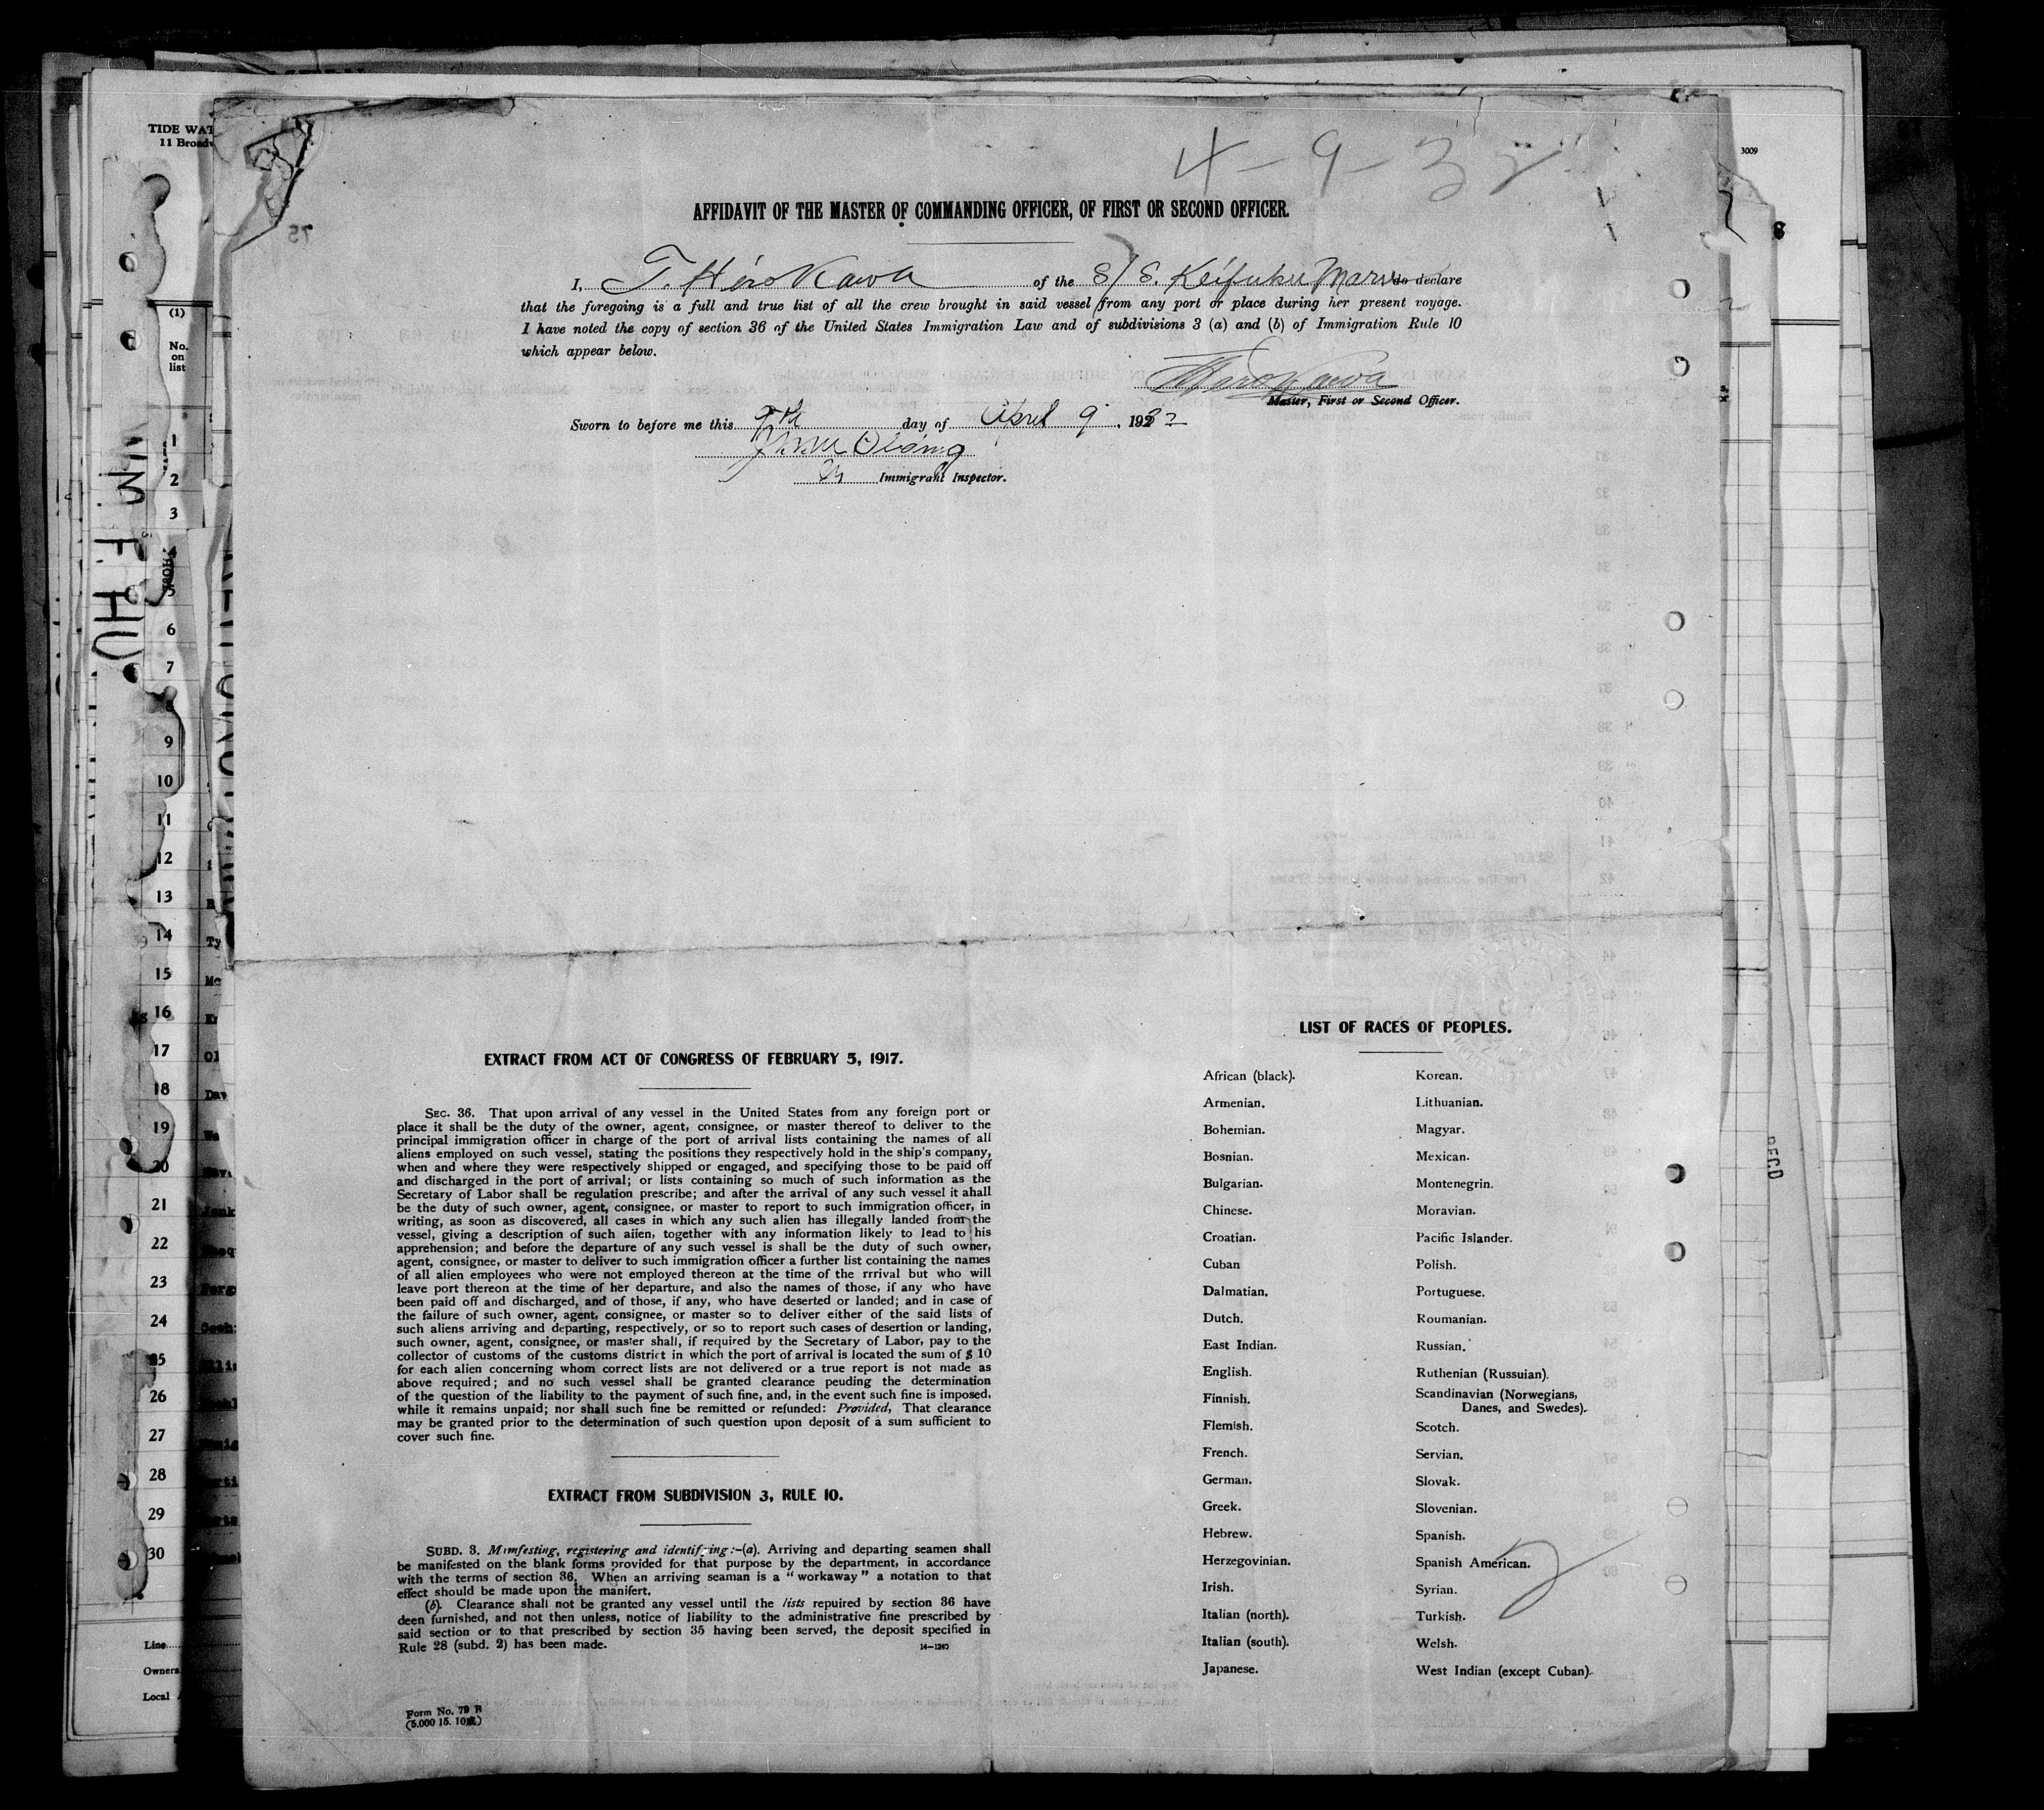 TIDE WAT
11 Broadw
3009
4-9-32
AFFIDAVIT OF THE MASTER OF COMMANDING OFFICER, OF FIRST OR SECOND OFFICER.
I, T. Hirokawa of the S/S. Keifuku Maru do declare
that the foregoing is a full and true list of all the crew brought in said vessel from any port or place during her present voyage.
I have noted the copy of section 36 of the United States Immigration Law and of subdivisions 3 (a) and (b) of Immigration Rule 10
which appear below.
T. Hirokawa
Master, First or Second Officer.
Sworn to before me this 9th day of April 9, 1932
Immigrant Inspector.
(1)
No.
on
list
1
2
3
5
6
7
8
9
10
11
12
13
14
15
16
17
18
19
20
21
22
23
24
25
26
27
28
29
30
WM F. HU
Line
Owners
Local
REC'D
EXTRACT FROM ACT OF CONGRESS OF FEBRUARY 5, 1917.
SEC. 36. That upon arrival of any vessel in the United States from any foreign port or
place it shall be the duty of the owner, agent, consignee, or master thereof to deliver to the
principal immigration officer in charge of the port of arrival lists containing the names of all
aliens employed on such vessel, stating the positions they respectively hold in the ship's company,
when and where they were respectively shipped or engaged, and specifying those to be paid off
and discharged in the port of arrival; or lists containing so much of such information as the
Secretary of Labor shall be regulation prescribe; and after the arrival of any such vessel it ahall
be the duty of such owner, agent, consignee, or master to report to such immigration officer, in
writing, as soon as discovered, all cases in which any such alien has illegally landed from the
vessel, giving a description of such aiien, together with any information likely to lead to his
apprehension; and before the departure of any such vessel is shall be the duty of such owner,
agent, consignee, or master to deliver to such immigration officer a further list containing the names
of all alien employees who were not employed thereon at the time of the rrrival but who will
leave port thereon at the time of her departure, and also the names of those, if any who have
been paid off and discharged, and of those, if any, who have deserted or landed; and in case of
the failure of such owner, agent, consignee, or master so to deliver either of the said lists of
such aliens arriving and departing, respectively, or so to report such cases of desertion or landing,
such owner, agent, consignee, or master shall, if required by the Secretary of Labor, pay to the
collector of customs of the customs district in which the port of arrival is located the sum of $ 10
for each alien concerning whom correct lists are not delivered or a true report is not made as
above required; and no such vessel shall be granted clearance peuding the determination
of the question of the liability to the payment of such fine, and, in the event such fine is imposed,
while it remains unpaid; nor shall such fine be remitted or refunded: Provided, That clearance
may be granted prior to the determination of such question upon deposit of a sum sufficient to
cover such fine.
EXTRACT FROM SUBDIVISION 3, RULE 10.
SUBD. 3. Mimfesting, registering and identifying:-(a). Arriving and departing seamen shall
be manifested on the blank forms provided for that purpose by the department, in accordance
with the terms of section 36. When an arriving seaman is a "workaway" a notation to that
effect should be made upon the manifert.
(b). Clearance shall not be granted any vessel until the lists repuired by section 36 have
deen furnished, and not then unless, notice of liability to the administrative fine prescribed by
said section or to that prescribed by section 35 having been served, the deposit specified in
Rule 28 (subd. 2) has been made. 14-1240
Form No. 79 B
(5.000 15. 10)
LIST OF RACES OF PEOPLES.
African (black). Korean.
Armenian. Lithuanian.
Bohemian. Magyar.
Bosnian. Mexican.
Bulgarian. Montenegrin.
Chinese. Moravian.
Croatian. Pacific Islander.
Cuban Polish.
Dalmatian. Portuguese.
Dutch. Roumanian.
East Indian. Russian.
English. Ruthenian (Russuian).
Finnish. Scandinavian (Norwegians,
Danes, and Swedes).
Flemish. Scotch.
French. Servian.
German. Slovak.
Greek. Slovenian.
Hebrew. Spanish.
Herzegovinian. Spanish American.
Irish. Syrian.
Italian (north). Turkish.
Italian (south). Welsh.
Japanese. West Indian (except Cuban).